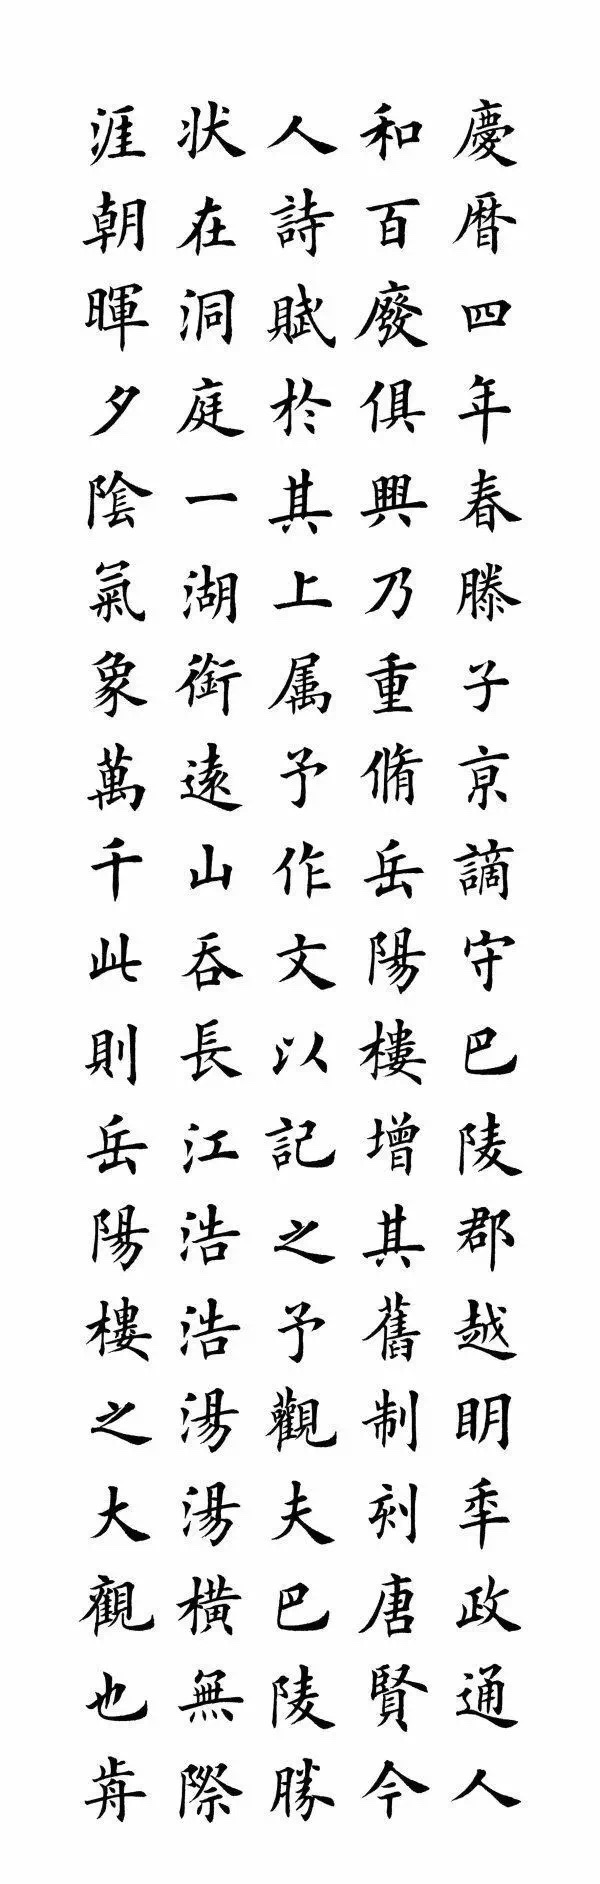 慶曆四年春滕子京謫守巴陵郡越明年政通人
和百廢俱興乃重脩岳陽樓增其舊制刻唐賢今
人詩賦於其上属予作文以記之予觀夫巴陵勝
状在洞庭一湖銜遠山吞長江浩浩湯湯橫無際
涯朝暉夕陰氣象萬千此則岳陽樓之大觀也前